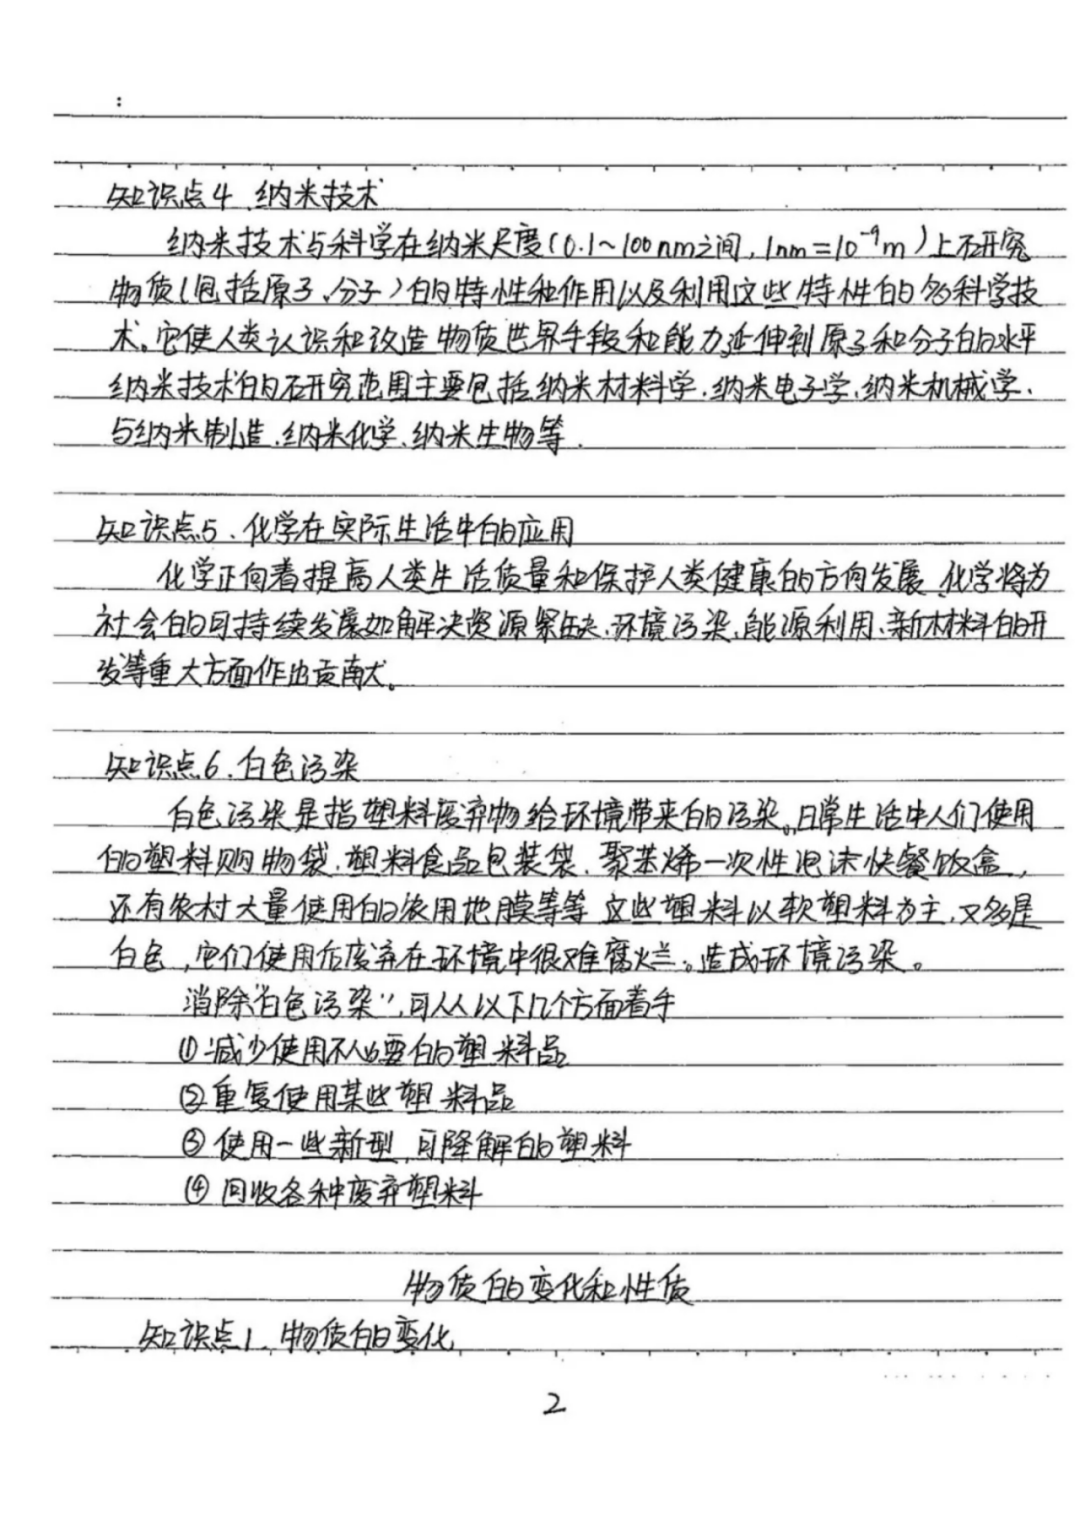 知识点4、纳米技术
纳米技术与科学在纳米尺度(0.1~100nm之间,1nm=10⁻⁹m)上研究
物质(包括原子、分子)的特性和作用以及利用这些特性的多科学技
术。它使人类认识和改造物质世界手段和能力延伸到原子和分子的水平
纳米技术的研究范围主要包括纳米材料学、纳米电子学、纳米机械学、
与纳米制造、纳米化学、纳米生物等.
知识点5、化学在实际生活中的应用
化学正向着提高人类生活质量和保护人类健康的方向发展、化学将为
社会的可持续发展如解决资源紧缺、环境污染、能源利用、新材料的开
发等重大方面作出贡献。
知识点6、白色污染
白色污染是指塑料废弃物给环境带来的污染。日常生活中人们使用
的塑料购物袋、塑料食品包装袋、聚苯烯一次性泡沫快餐饭盒,
还有农村大量使用的农用地膜等等 这些塑料以软塑料为主,又多是
白色,它们使用后废弃在环境中很难腐烂。造成环境污染。
消除“白色污染”,可从以下几个方面着手
①减少使用不必要的塑料品
②重复使用某些塑料品
③使用一些新型、可降解的塑料
④回收各种废弃塑料
物质的变化和性质
知识点1、物质的变化
2